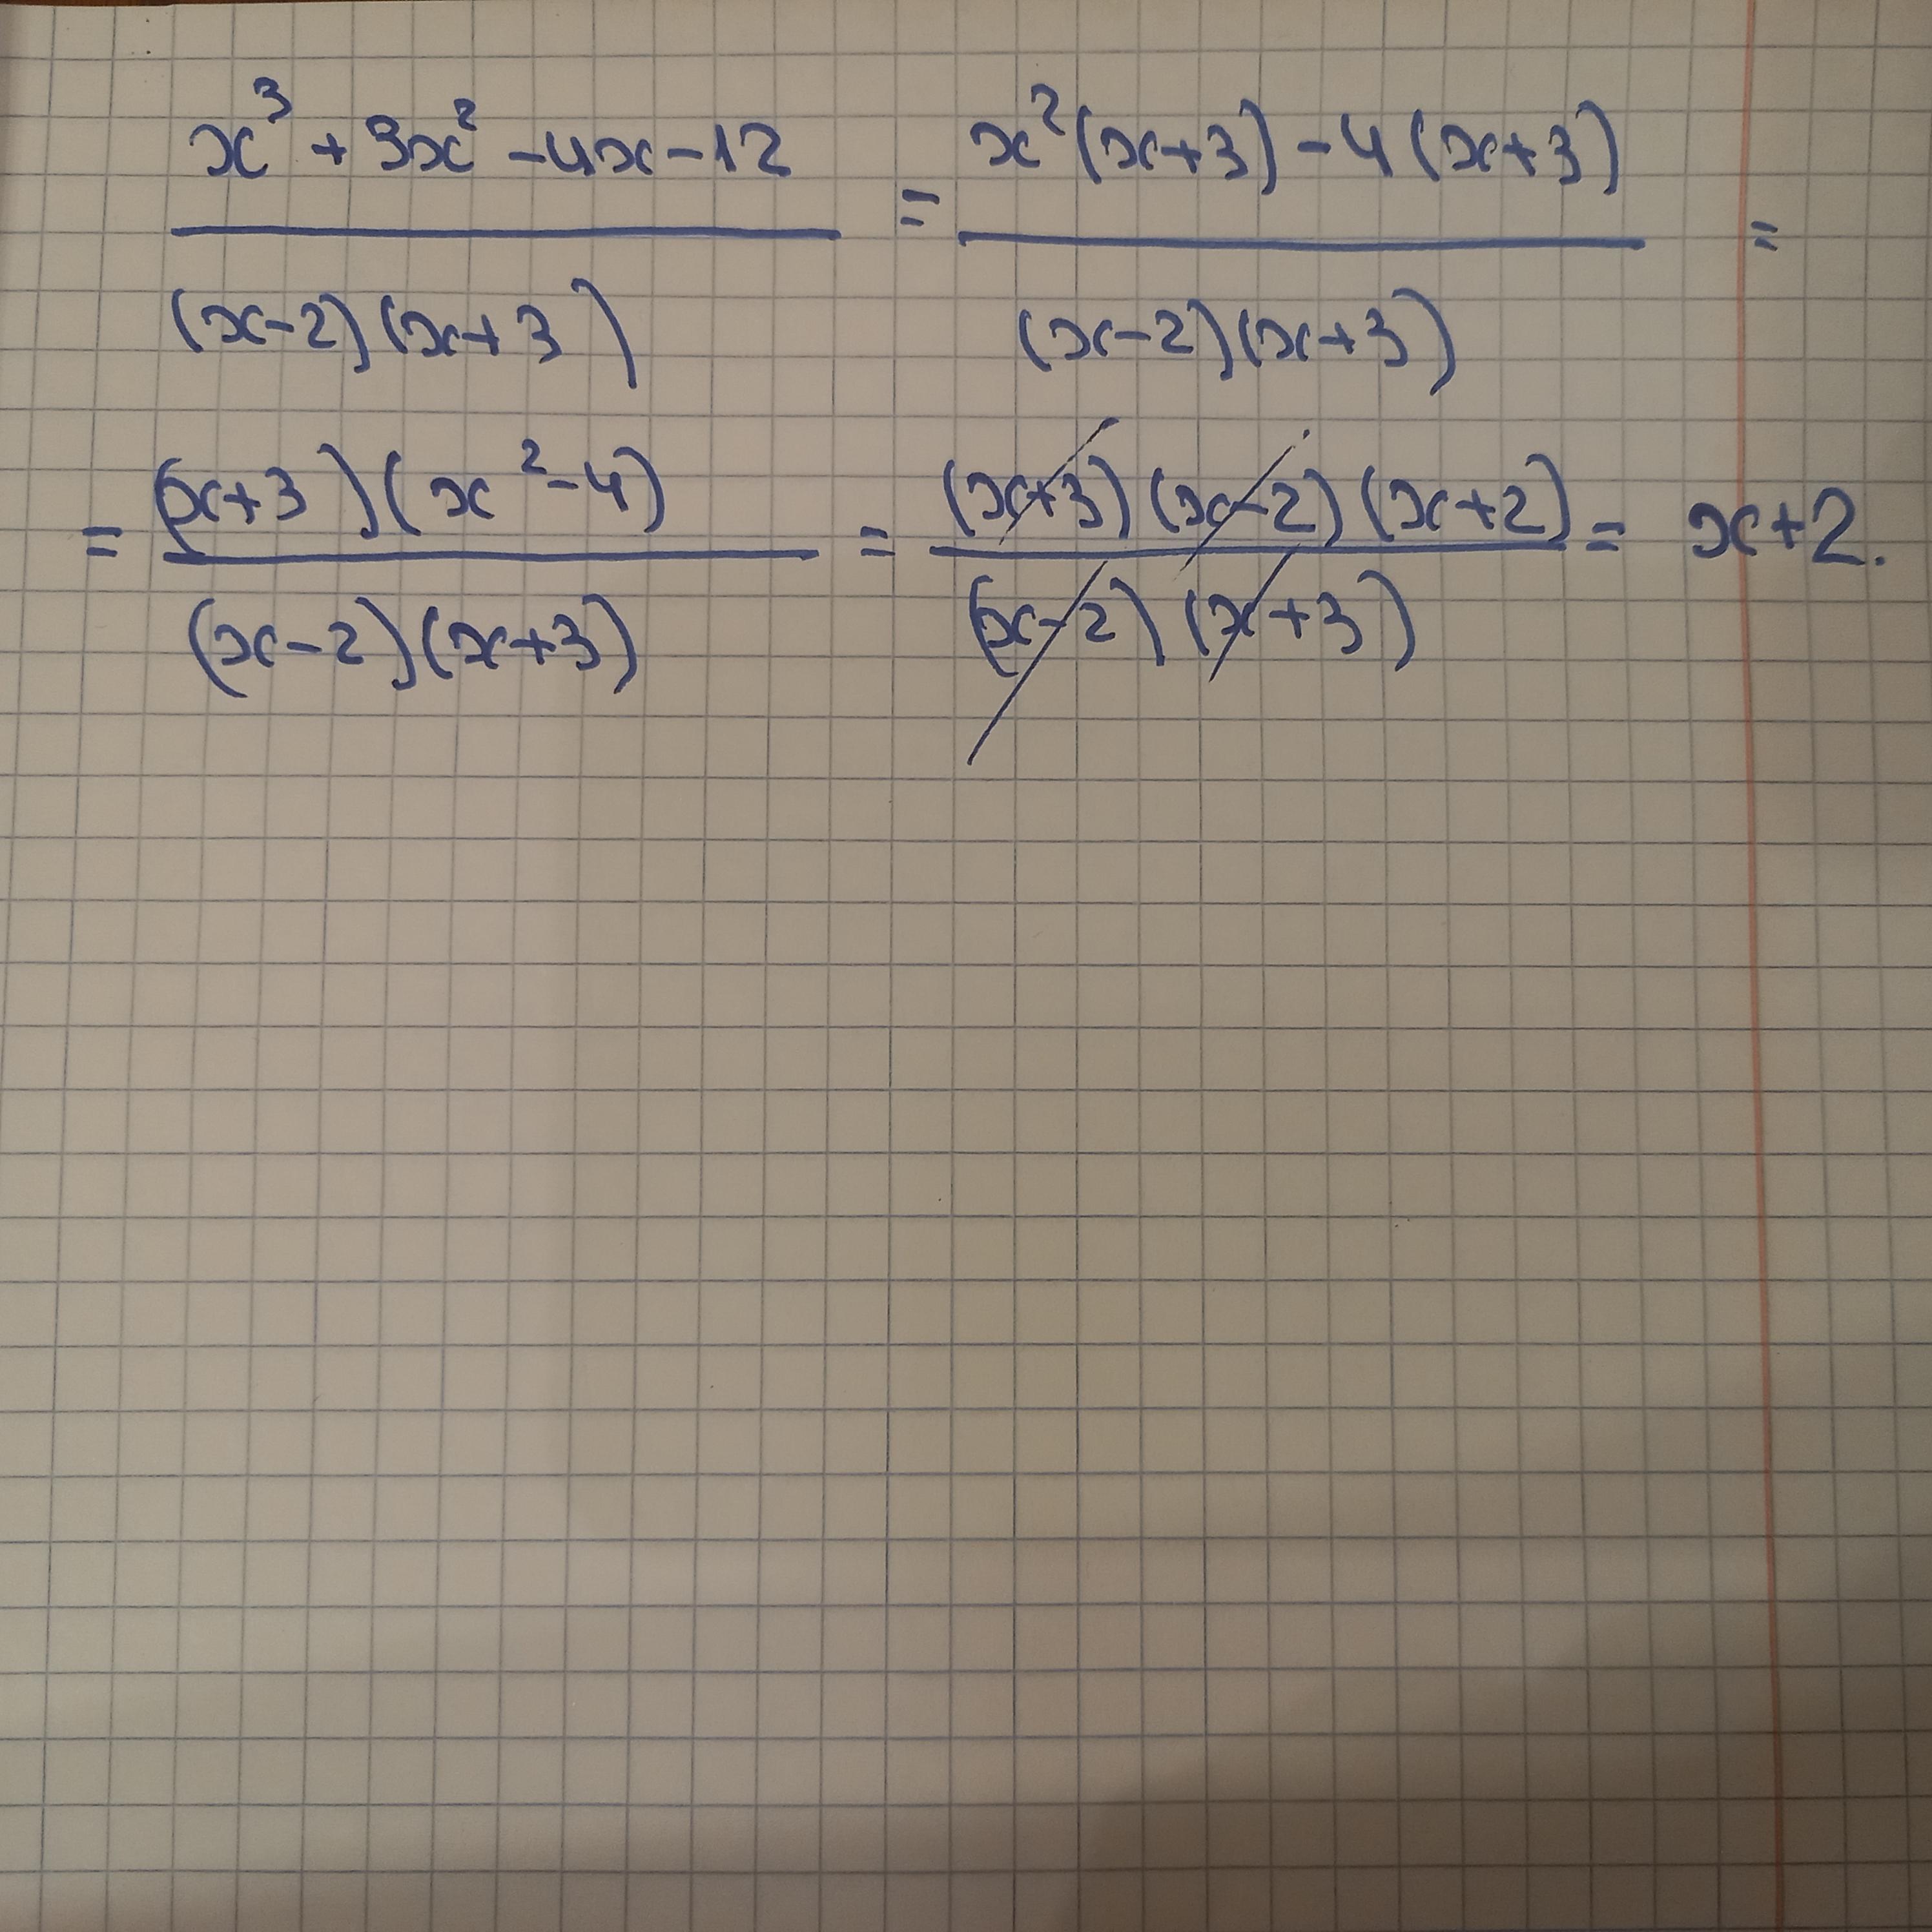 x³ + 3x² - 4x - 12 = x²(x+3) - 4(x+3) =
(x-2)(x+3) (x-2)(x+3)
= (x+3)(x²-4) = (x+3)(x-2)(x+2) = x+2.
(x-2)(x+3) (x-2)(x+3)